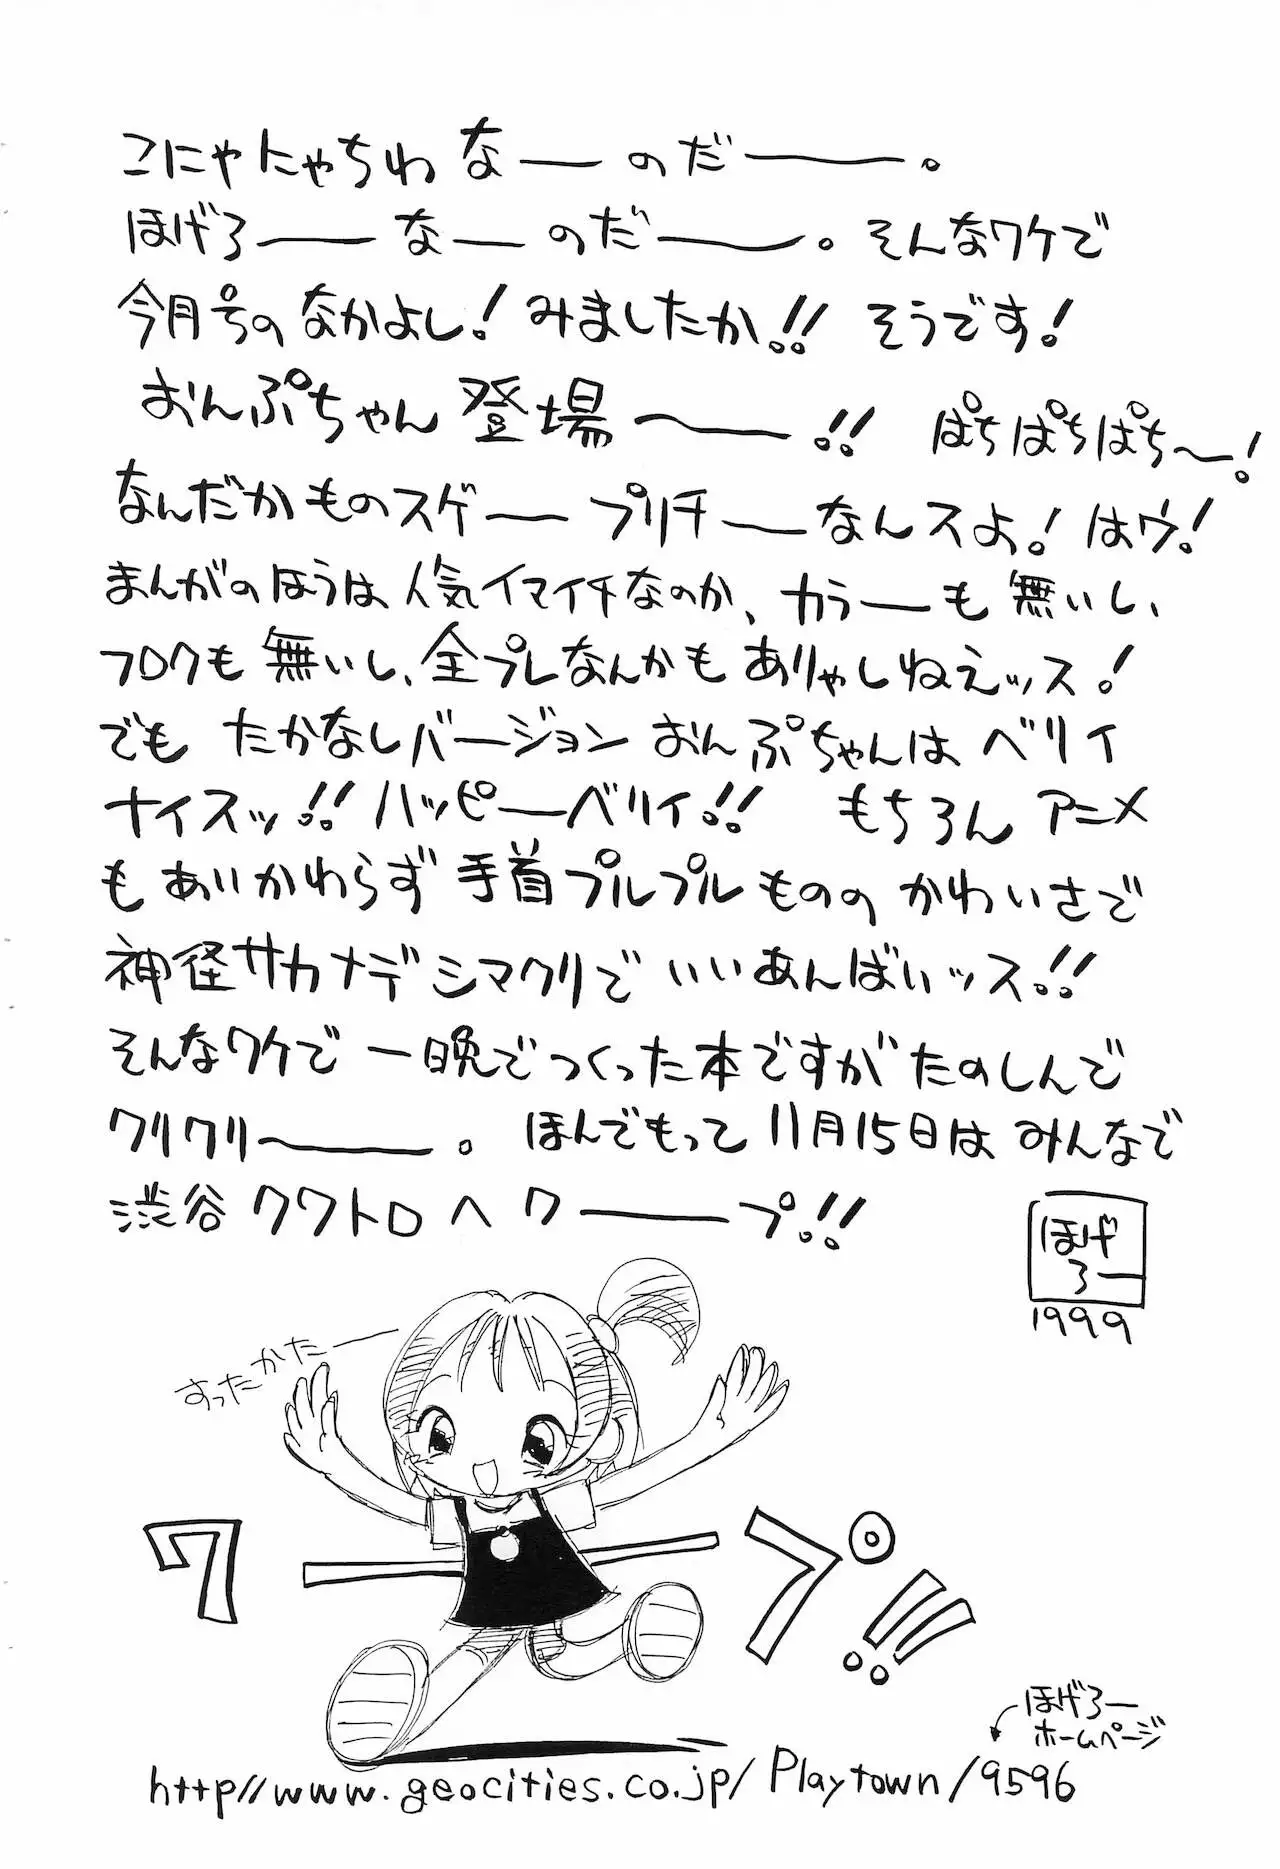 こにゃにゃちわ なーのだー。
ほげろー なーのだー。そんなワケで
今月号の なかよし! みましたか!! そうです!
おんぷちゃん 登場ー!! ぱちぱちぱち〜!
なんだか ものスゲー プリチーなんスよ! はウ!
まんがのほうは 人気イマイチなのか、カラーも 無いし、
フロクも 無いし、全プレなんかも ありゃしねえッス!
でも たかなしバージョン おんぷちゃんは ベリイ
ナイスッ!! ハッピーベリイ!! もちろん アニメ
も あいかわらず 手首プルプル ものの かわいさで
神径サカナデ シマクリで いいあんばいッス!!
そんなワケで 一晩でつくった本ですが たのしんで
クリクリー。 ほんでもって 11月15日は みんなで
渋谷 クワトロ へ ワープ!!
ほげ
ろー
1999
すったかたー
ワープ!!!
ほげろー
ホームページ
http//www.geocities.co.jp/Playtown/9596